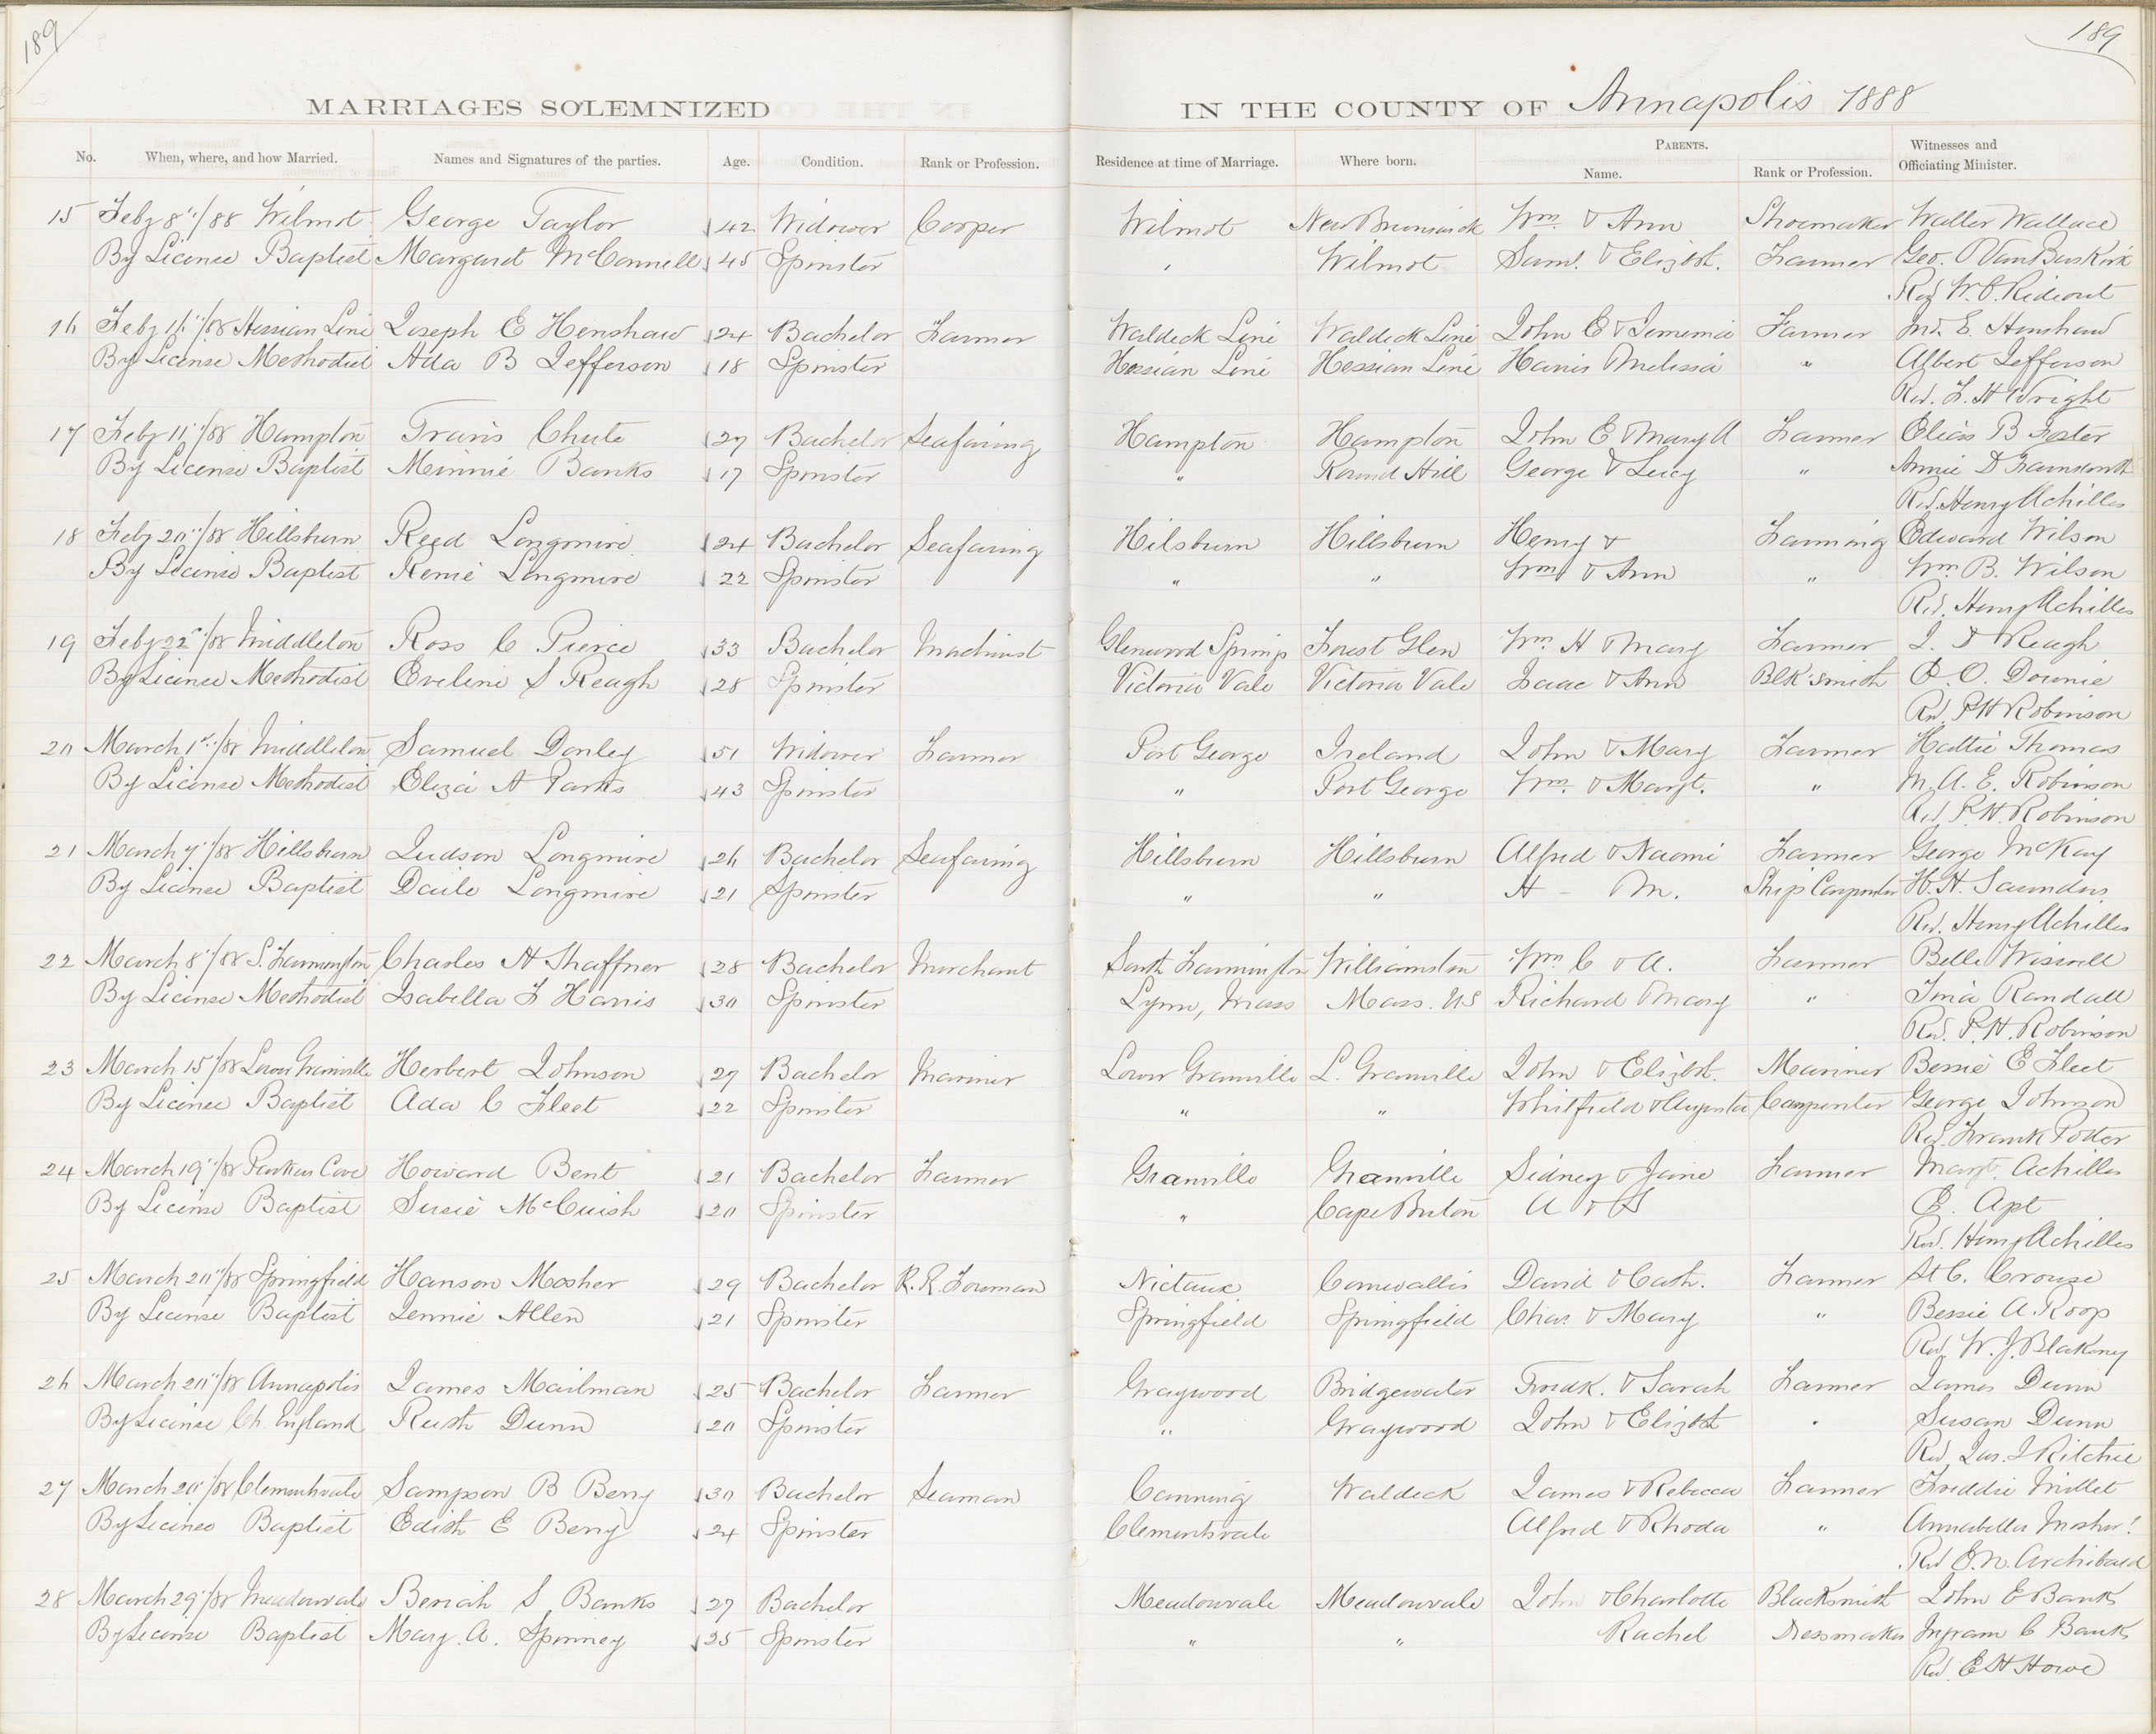 189
189
MARRIAGES SOLEMNIZED IN THE COUNTY OF Annapolis 1888
No. When, where, and how Married. Names and Signatures of the parties. Age. Condition. Rank or Profession. Residence at time of Marriage. Where born. PARENTS. Name. Rank or Profession. Witnesses and Officiating Minister.
15 Feby 8"/88 Wilmot George Taylor 42 Widower Cooper Wilmot New Brunswick Wm. & Ann Shoemaker Walter Wallace
By License Baptist Margaret McConnell 45 Spinster " Wilmot Saml. & Elizbt. Farmer Geo. VanBuskirk
Rev W. Rideout
16 Feby 16"/88 Hessian Line Joseph E Henshaw 24 Bachelor Farmer Waldeck Line Waldeck Line John E & Jememia Farmer Jno. E. Henshaw
By License Methodist Ada B Jefferson 18 Spinster Hessian Line Hessian Line Harris Melissa " Albert Jefferson
Rev. F. H Wright
17 Feby 11"/88 Hampton Travis Chute 27 Bachelor Seafaring Hampton Hampton John E & Mary A Farmer Elias B Foster
By License Baptist Minnie Banks 17 Spinster " Round Hill George & Lucy " Annie D Farnsworth
Rev. Henry Achilles
18 Feby 20"/88 Hillsburn Reed Longmire 24 Bachelor Seafaring Hilsburn Hillsburn Henry & Farming Edward Wilson
By License Baptist Renie Longmire 22 Spinster " " Wm & Ann " Wm. B. Wilson
Rev. Henry Achilles
19 Feby 22"/88 Middleton Ross C Pierce 33 Bachelor Machinist Glenwood Springs Forest Glen Wm. H & Mary Farmer I. D Reagh
By License Methodist Eveline S Reagh 28 Spinster Victoria Vale Victoria Vale Isaac & Ann Blk smith O. Downie
Rev. P H Robinson
20 March 1st/88 Middleton Samuel Donley 51 Widower Farmer Port George Ireland John & Mary Farmer Hattie Thomas
By License Methodist Eliza A Parks 43 Spinster " Port George Wm. & Margt. " M. A. E. Robinson
Rev P. H. Robinson
21 March 7"/88 Hillsburn Judson Longmire 26 Bachelor Seafaring Hillsburn Hillsburn Alfred & Naomi Farmer George McKay
By License Baptist Daile Longmire 21 Spinster " " H - M. Ship Carpenter H. H. Saunders
Rev. Henry Achilles
22 March 8"/88 S. Farmington Charles H Shaffner 28 Bachelor Merchant South Farmington Williamston Wm C & A. Farmer Belle Wiswell
By License Methodist Isabella F Harris 30 Spinster Lynn, Mass Mass. US Richard & Mary " Ima Randall
Rev. P. H. Robinson
23 March 15"/88 Lower Granville Herbert Johnson 27 Bachelor Mariner Lower Granville L. Granville John & Elizbt. Mariner Bessie E Fleet
By License Baptist Ada C Fleet 22 Spinster " " Whitfield & Augusta Carpenter George Johnson
Rev. Frank Potter
24 March 19"/88 Parkers Cove Howard Bent 21 Bachelor Farmer Granville Granville Sidney & Jane Farmer Margt. Achilles
By License Baptist Susie McCuish 20 Spinster " Cape Breton A & S E. Apt
Rev. Henry Achilles
25 March 20"/88 Springfield Hanson Mosher 29 Bachelor R. R. Foreman Nictaux Cornwallis David & Cath. Farmer St C. Crouse
By License Baptist Jennie Allen 21 Spinster Springfield Springfield Chas. & Mary " Bessie A. Roop
Rev W. J. Blakeney
26 March 20"/88 Annapolis James Mailman 25 Bachelor Farmer Graywood Bridgewater Fredk. & Sarah Farmer James Dunn
By License Ch. England Ruth Dunn 20 Spinster " Graywood John & Elizbt " Susan Dunn
Rev Jas. J Ritchie
27 March 20"/88 Clementsvale Sampson B Berry 30 Bachelor Seaman Canning Waldeck James & Rebecca Farmer Freddie Millet
By License Baptist Edith E Berry 24 Spinster Clementsvale Alfred & Rhoda " Annabella Mosher
Rev E. N. Archibald
28 March 29"/88 Meadowvale Beriah S Banks 27 Bachelor Meadowvale Meadowvale John & Charlotte Blacksmith John E Banks
By License Baptist Mary. A. Spinney 25 Spinster " " Rachel Dressmaker Ingram C Banks
Rev. E H Howe